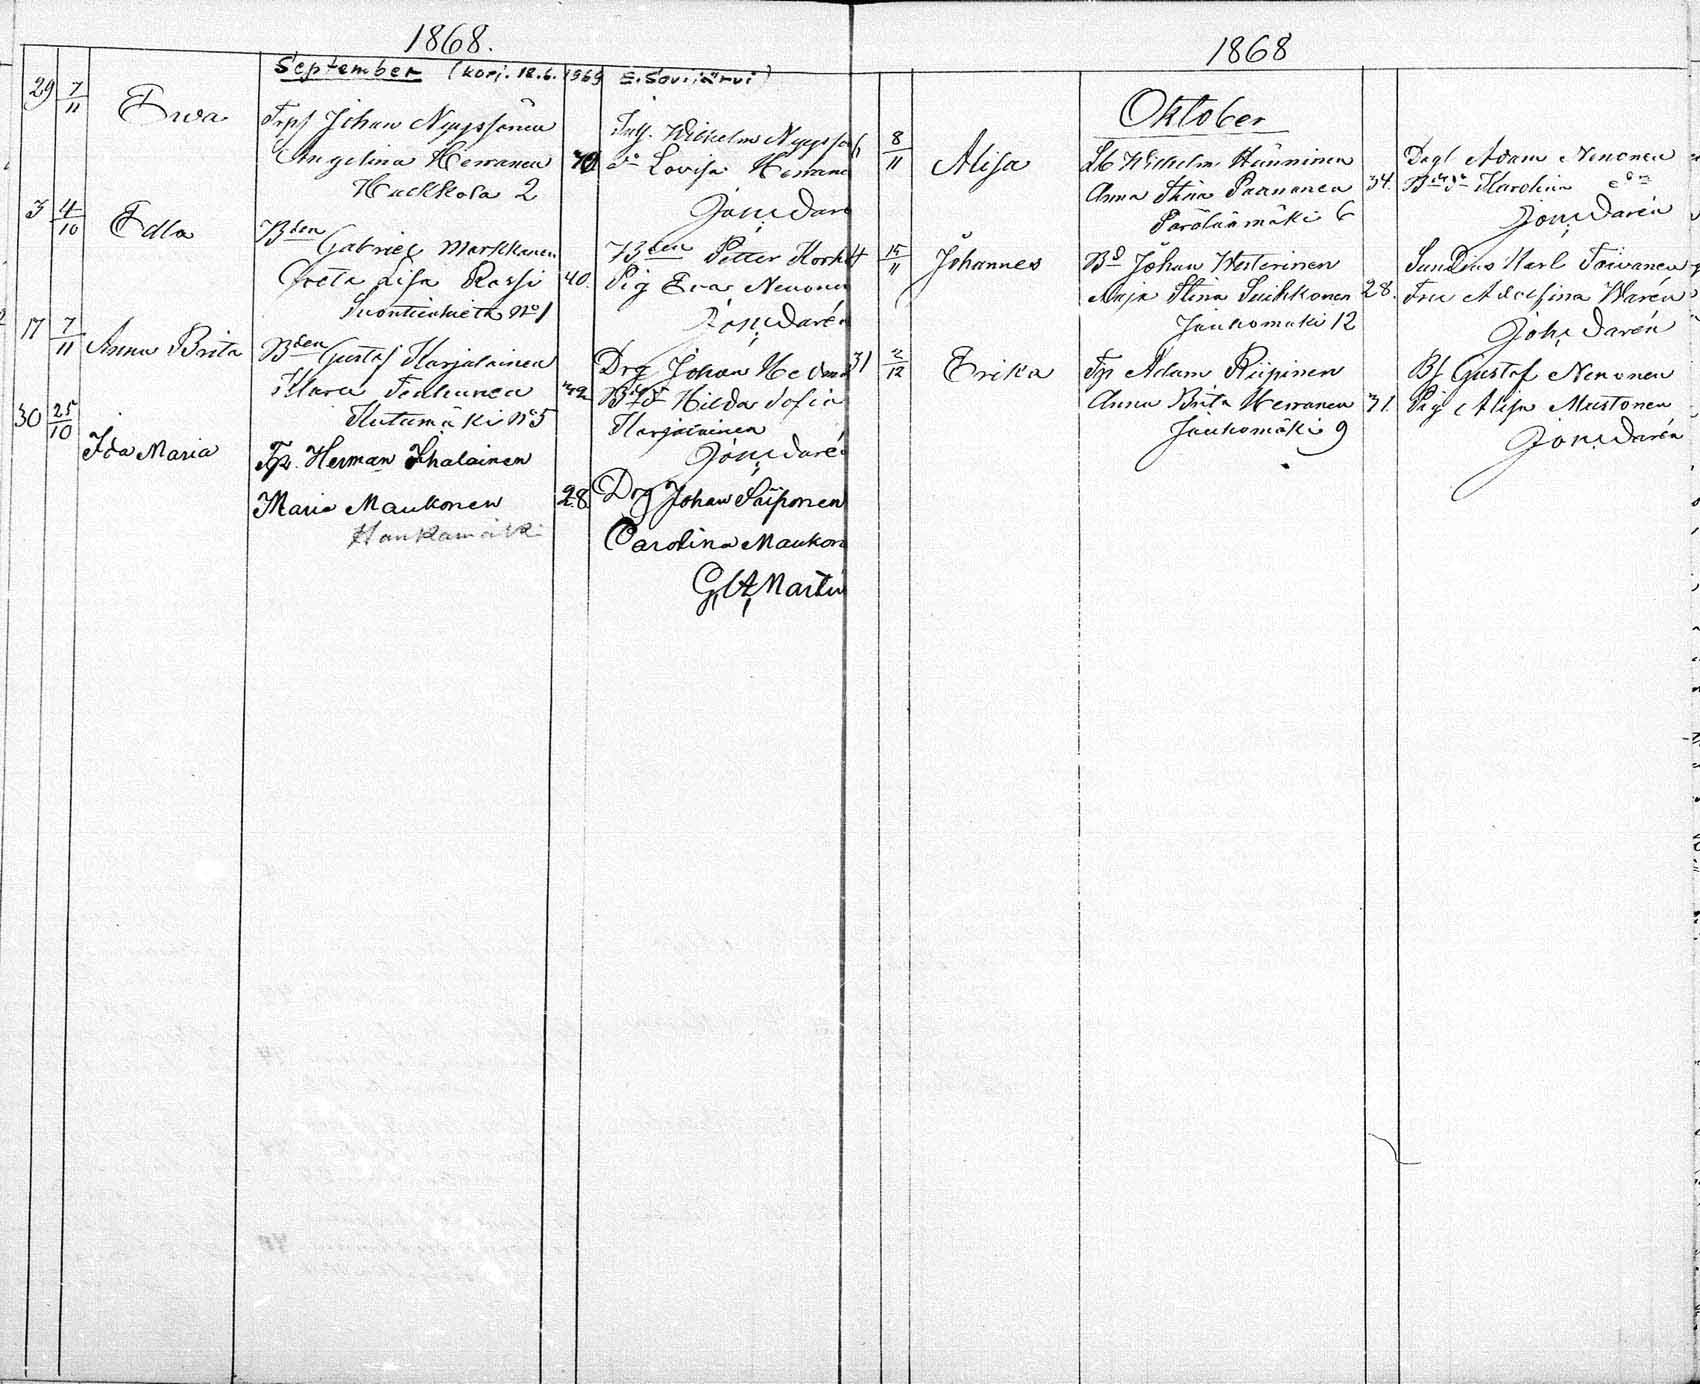 1868.
September (korj. 18.6.1969 E. Sovijärvi)
29 7/11 Ewa Trpf Johan Nyyssönen
Angelina Herranen
Huckkola 2
Wilhelm Nyyssö
Lovisa Herrane
Joh. Darén
3 4/10 Edla Bden Gabriel Markkanen
Greta Lisa Rossi 40.
No 1
Bden Petter Kork
Pig Eva Nenonen
Joh. Darén
17 7/11 Anna Brita Bden Gustaf Karjalainen
Klara Tenhunen 32
Rutumäki No 5
Drg Johan Hedma
Hilda Sofia
Karjalainen
Joh. Daré
30 25/10 Ida Maria Tp. Herman Ihalainen
Maria Maukonen 28
Haukamäki
Drg Johan Piiponen
Carolina Maukon
G. A. Martin
1868
Oktober
6 8/11 Alisa Wilhelm Hänninen
Anna Stina Paananen 34.
Pärölänmäki 6
Adam Nenonen
Karolina
Joh. Darén
4 15/11 Johannes Bd Johan Westerinen
Maja Stina Suihkonen 28.
Jaukomäki 12
Karl Toivanen
Fru Adolfina Warén
Joh. Darén
31 2/12 Erika Tp Adam Riipinen
Anna Brita Herranen 31.
Jaukomäki 9
Bf Gustaf Nenonen
Pig Alisa Mustonen
Joh. Darén